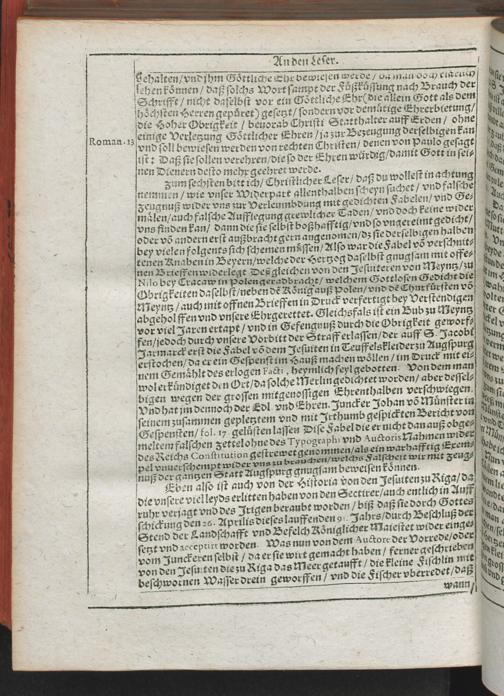 An den Leser.
gehalten/ vnd jhm Göttliche Ehr bewiesen werde/ da man doch
sehen können/ daß solchs Wort sampt der Füßküssung nach Brauch der
Schrifft/ nicht daselbst vor ein Göttliche Ehr (die allein Gott als dem
höchsten Herren gepüret) gesetzt/ sondern vor demütige Ehrerbietung/
die Hoher Obrigkeit/ beuorab Christi Statthalter auff Erden/ ohne
einige Verletzung Göttlicher Ehren/ ja zur Bezeugung derselbigen kan
Roman. 13
vnd soll bewiesen werden von rechten Christen/ denen von Paulo gesagt
ist: Daß sie sollen verehren/ die so der Ehren würdig/ damit Gott in sei-
nen Dienern desto mehr geehret werde.
Zum sechsten bitt ich/ Christlicher Leser/ daß du wollest in achtung
nemmen/ wie vnser Widerpart allenthalben scheyn suchet/ vnd falsche
zeugnuß wider vns zur Verleumbdung mit gedichten Fabelen/ vnd Ge-
mälen/ auch falsche Aufflegung grewlicher Taden/ vnd doch keine wider
vns finden kan/ dann die sie selbst boßhafftig/ vnd so vngereimt gedicht/
oder võ andern erst außbracht gern angenomen/ dz sie derselbigen halben
bey vielen folgents sich schemen müssen/ Also war die Fabel võ verschnit-
tenen Knaben in Beyern/ welche der Hertzog daselbst gnugsam mit offe-
nen Brieffen widerlegt. Deßgleichen von den Jesuiteren von Meyntz/ zu
Nilo bey Cracaw in Polen geradbracht/ welchem Gottlosen Gedicht die
Obrigkeiten daselbst/ neben dẽ König auß Polen/ vnd dẽ Churfürsten võ
Meyntz/ auch mit offnen Brieffen in Druck verfertigt bey Verstendigen
abgeholffen vnd vnsere Ehrgerettet. Gleichsfals ist ein Bub zu Meyntz
vor viel Jaren ertapt/ vnd in Gefengnuß durch die Obrigkeit geworf-
fen/ jedoch durch vnsere Vorbitt der Straff erlassen/ der auff S. Jacobi
Jarmarck erst die Fabel võ dem Jesuiten in Teuffelskleider zu Augspurg
erstochen/ da er ein Gespenst im Hauß machen wöllen/ im Druck mit ei-
nem Gemählt des erlogen Facti, heymlich feyl gebotten. Von dem man
wol erkündiget den Ort/ da solche Merlin gedichtet worden/ aber dessel-
bigen wegen der grossen mitgenossigen Ehrenthalben verschwiegen.
Vnd hat jm dennoch der Edl vnd Ehren. Juncker Johan võ Münster in
seinem zusammen gepletztem vnd mit Irthumb gespickten Bericht von
Gespensten/ fol. 17. gelüsten lassen Dise Fabel die er nicht dan auß obge-
melten falschen zettel ohne des Typographi vnd Auctoris Nahmen wider
des Reichs Constitution gestrewet genommen/ als ein warhafftig Exem-
pel vnuerschempt wider vns zu brauchen/ welchs Falscheit wir mit zeug-
nuß der gantzen Statt Augspurg gnugsam beweisen können.
Eben also ist auch von der Historia von den Jesuiten zu Riga/ da
die vnsere viel leyds erlitten haben von den Sectirer/ auch entlich in Auff
ruhr verjagt vnd des Irigen beraubt worden/ biß daß sie durch Gottes
schickung den 26. Aprilis dieses lauffenden 91. Jahrs/ durch Beschluß der
Stend der Landschafft vnd Befelch Königlicher Maiestet wider einge-
setzt vnd acceptirt worden. Was nun von dem Auctore der Vorrede/ oder
vom Junckeren selbst/ da er sie wirt gemacht haben/ ferner geschrieben
von den Jesuiten die zu Riga das Meer getaufft/ die kleine Fischlin mit
beschwornen Wasser drein geworffen/ vnd die Fischer vberredet/ daß
wann/